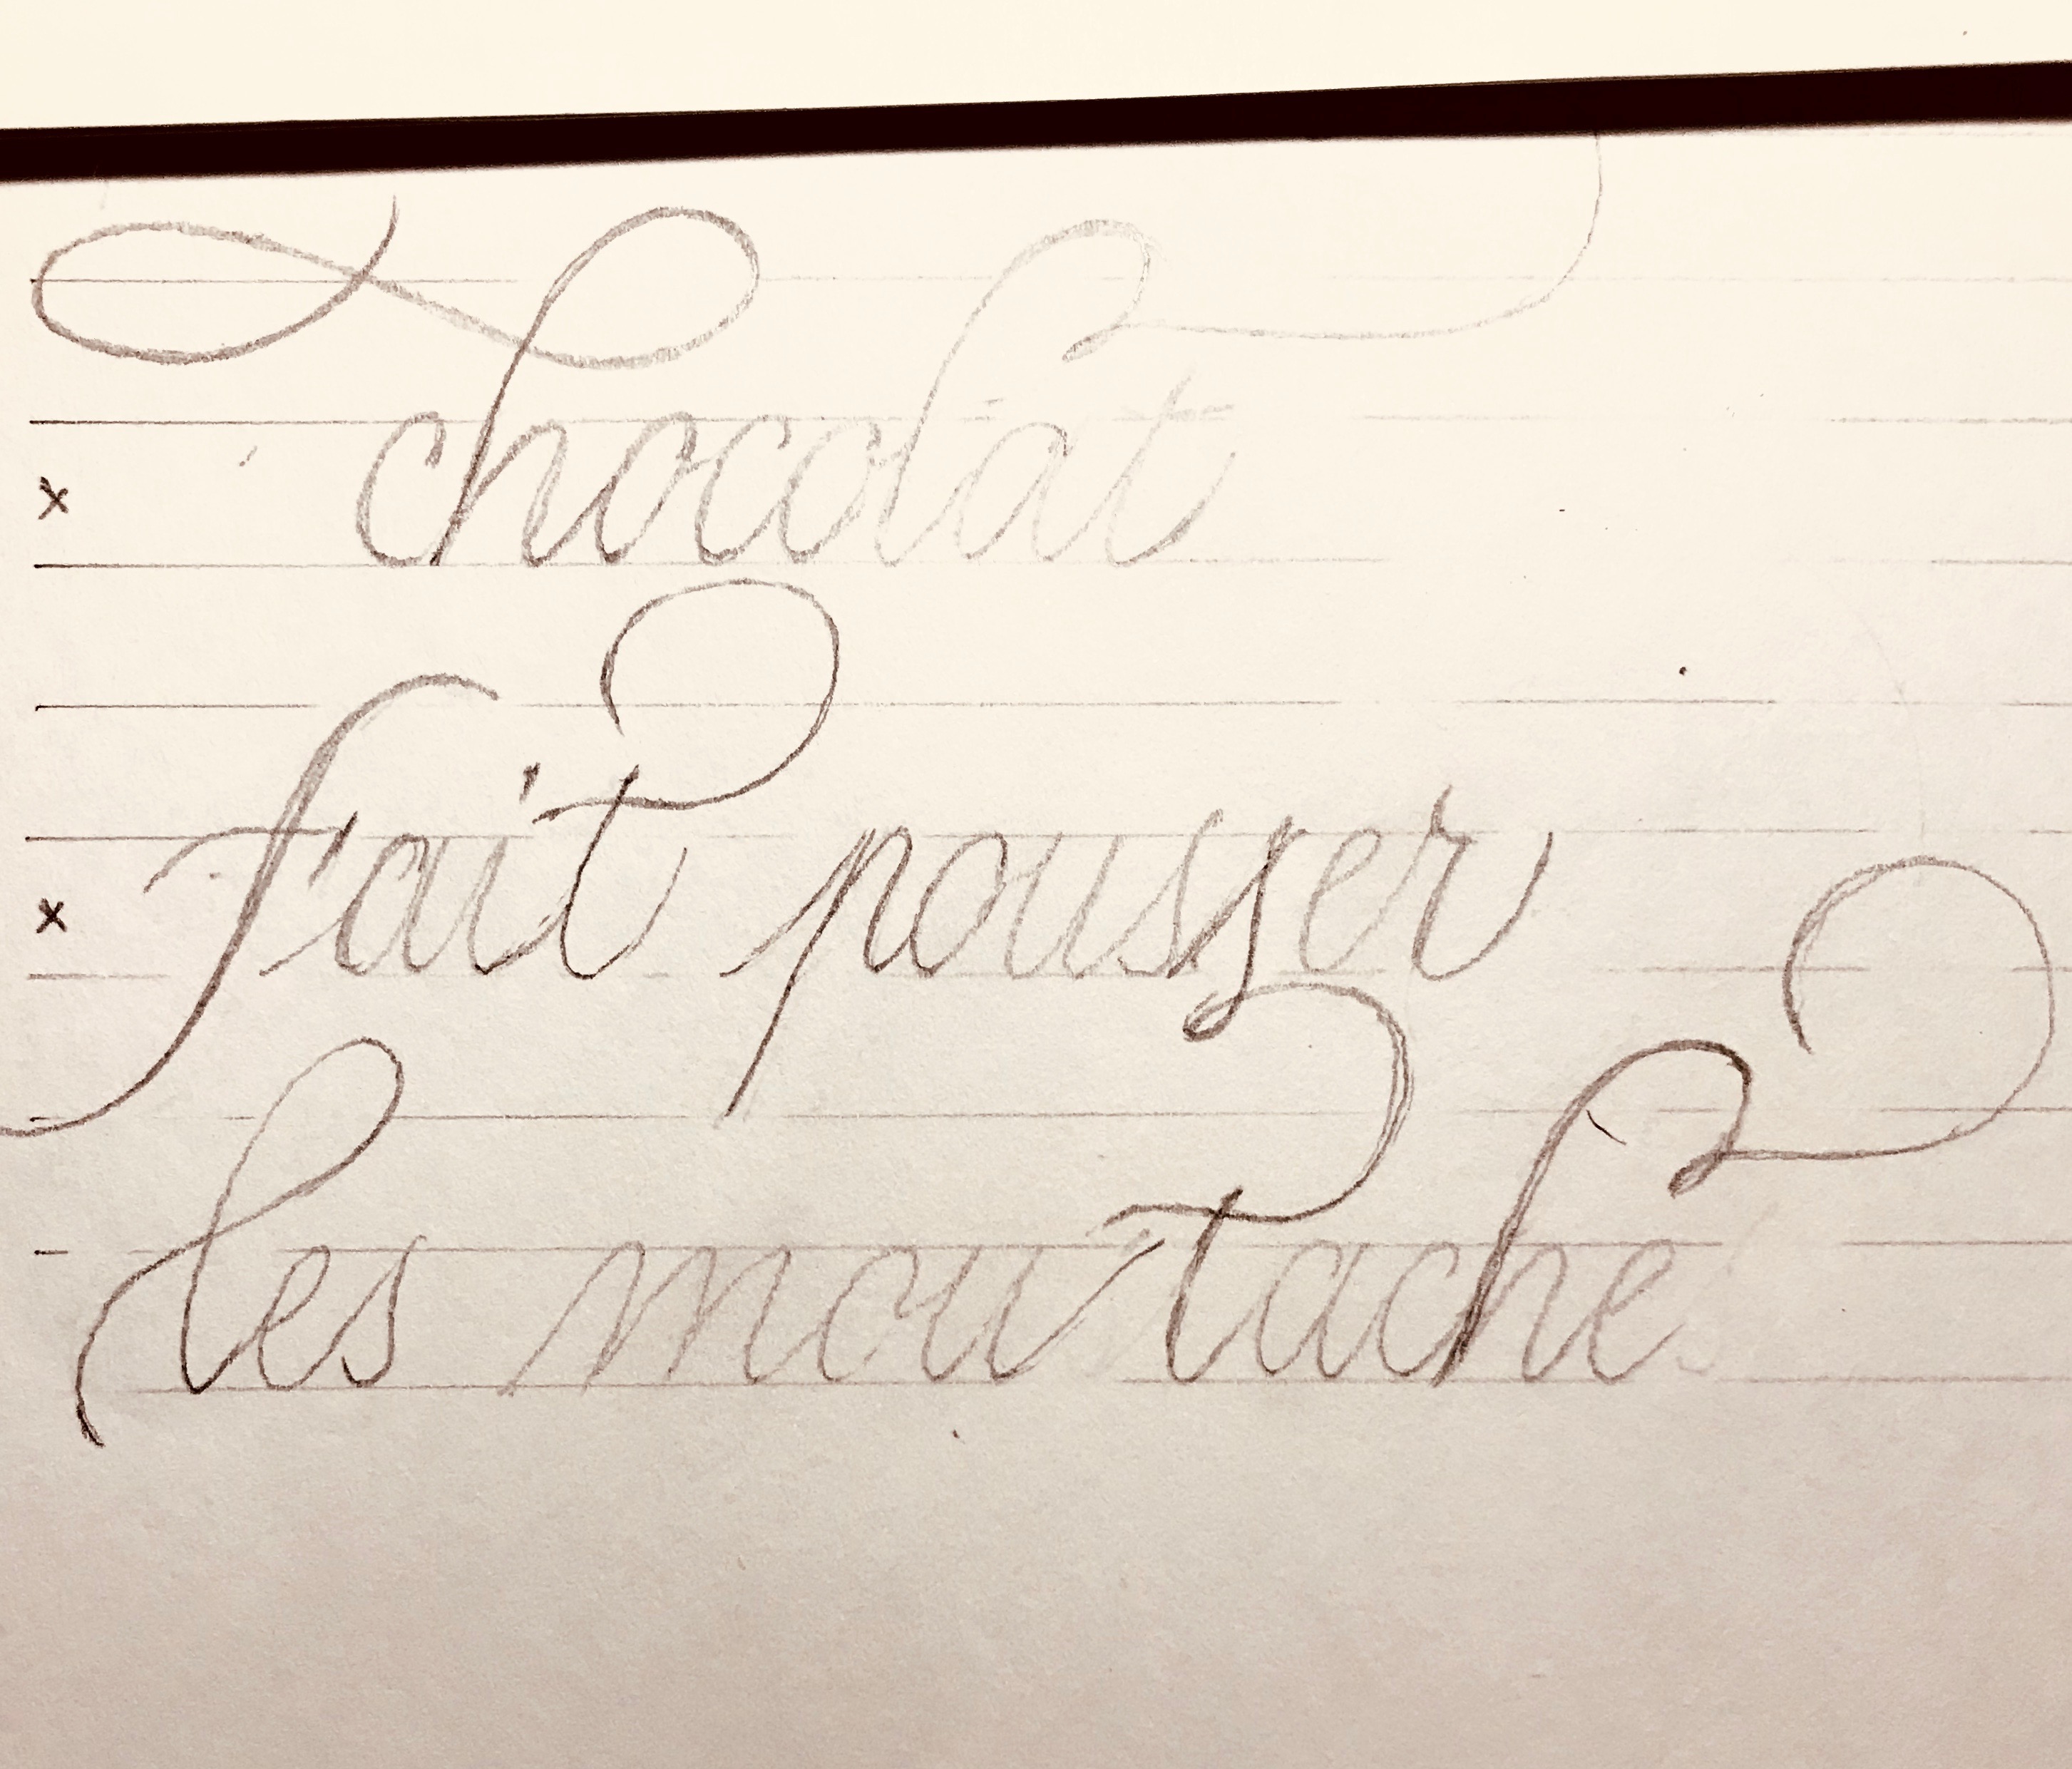 x chocolat
x fait pousser
les moutache